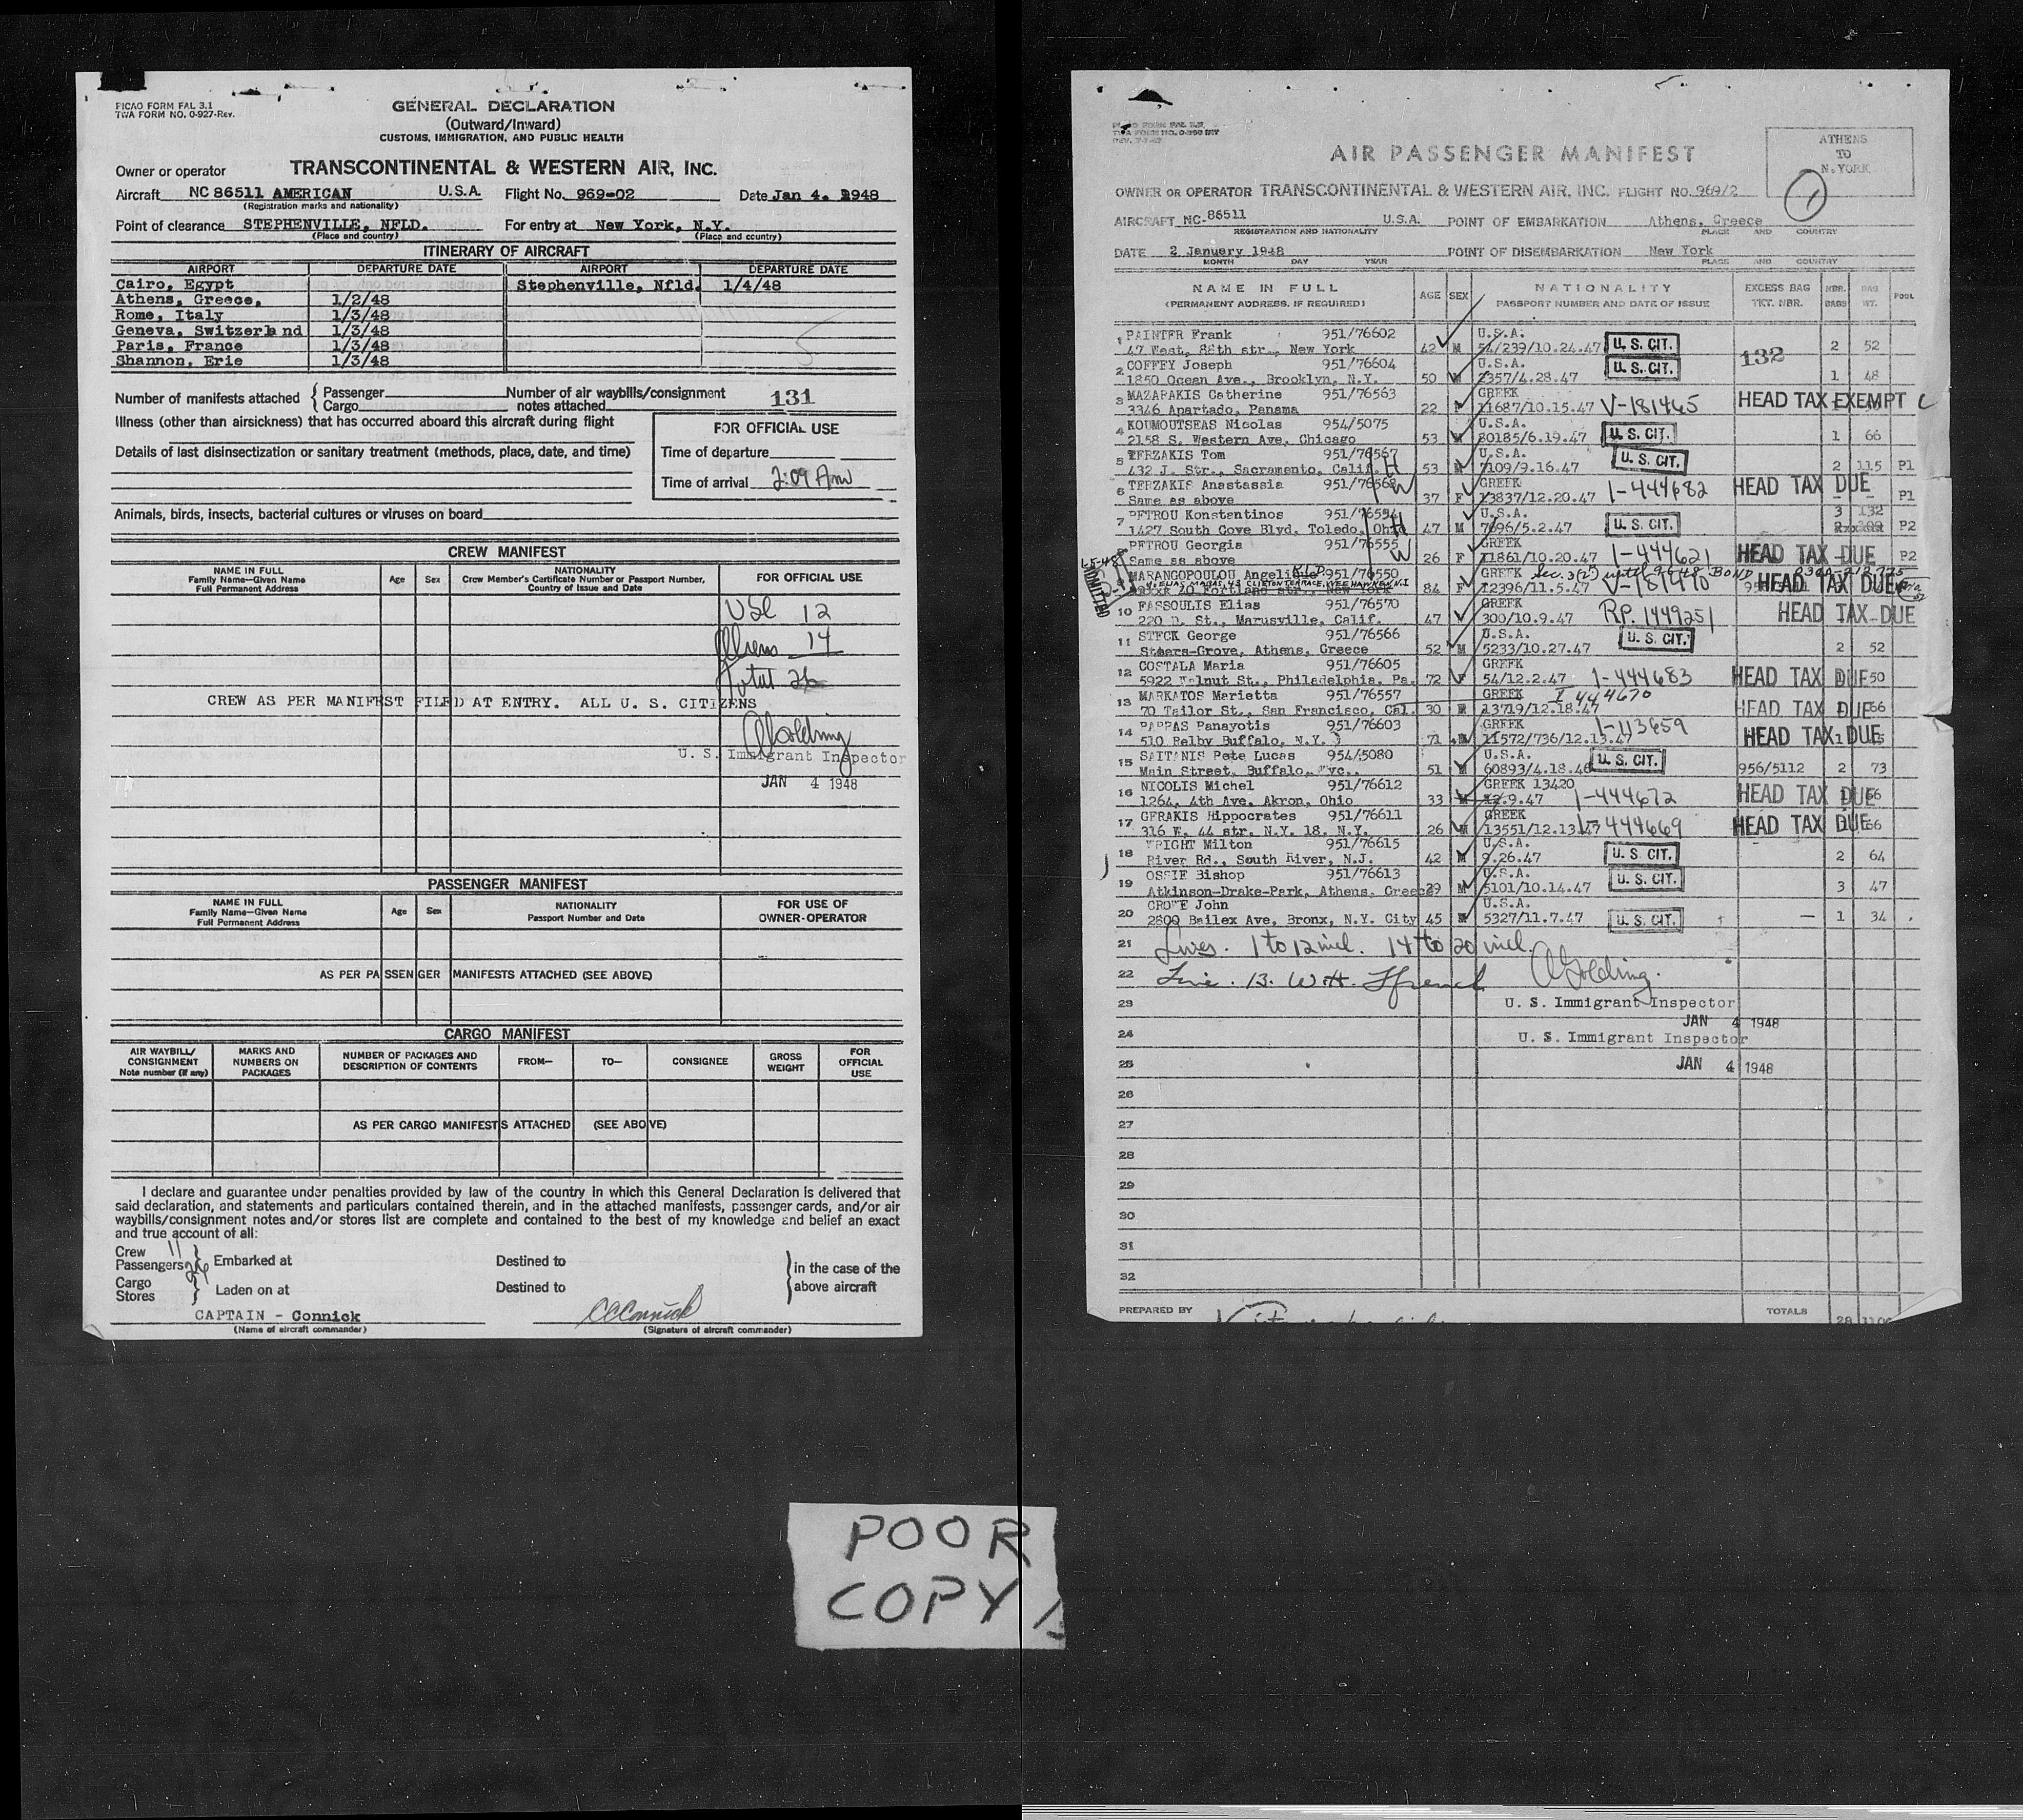 FICAO FORM FAL 3.1
TWA FORM NO. O-927-Rev.
GENERAL DECLARATION
(Outward/Inward)
CUSTOMS, IMMIGRATION, AND PUBLIC HEALTH
Owner or operator TRANSCONTINENTAL & WESTERN AIR, INC.
Aircraft NC 86511 AMERICAN U.S.A. Flight No. 969-02 Date Jan 4. 1948
(Registration marks and nationality)
Point of clearance STEPHENVILLE, NFLD. For entry at New York, N.Y.
(Place and country) (Place and country)
ITINERARY OF AIRCRAFT
AIRPORT DEPARTURE DATE AIRPORT DEPARTURE DATE
Cairo, Egypt Stephenville, Nfld. 1/4/48
Athens, Greece, 1/2/48
Rome, Italy 1/3/48
Geneva, Switzerland 1/3/48
Paris, France 1/3/48
Shannon, Erie 1/3/48
Number of manifests attached { Passenger Number of air waybills/consignment 131
Cargo notes attached
Illness (other than airsickness) that has occurred aboard this aircraft during flight
FOR OFFICIAL USE
Details of last disinsectization or sanitary treatment (methods, place, date, and time)
Time of departure
Time of arrival 2:09 Am
Animals, birds, insects, bacterial cultures or viruses on board
CREW MANIFEST
NAME IN FULL
Family Name—Given Name
Full Permanent Address
Age Sex
NATIONALITY
Crew Member's Certificate Number or Passport Number,
Country of Issue and Date
FOR OFFICIAL USE
USC 12
Aliens 14
Total 26
CREW AS PER MANIFEST FILED AT ENTRY. ALL U. S. CITIZENS
AGolding
U. S. Immigrant Inspector
JAN 4 1948
PASSENGER MANIFEST
NAME IN FULL
Family Name—Given Name
Full Permanent Address
Age Sex
NATIONALITY
Passport Number and Date
FOR USE OF
OWNER-OPERATOR
AS PER PASSENGER MANIFESTS ATTACHED (SEE ABOVE)
CARGO MANIFEST
AIR WAYBILL/
CONSIGNMENT
Note number (if any)
MARKS AND
NUMBERS ON
PACKAGES
NUMBER OF PACKAGES AND
DESCRIPTION OF CONTENTS
FROM— TO— CONSIGNEE
GROSS
WEIGHT
FOR
OFFICIAL
USE
AS PER CARGO MANIFESTS ATTACHED (SEE ABOVE)
I declare and guarantee under penalties provided by law of the country in which this General Declaration is delivered that
said declaration, and statements and particulars contained therein, and in the attached manifests, passenger cards, and/or air
waybills/consignment notes and/or stores list are complete and contained to the best of my knowledge and belief an exact
and true account of all:
Crew 11
Passengers 26 } Embarked at Destined to } in the case of the
Cargo
Stores } Laden on at Destined to above aircraft
CAPTAIN - Connick CCConnick
(Name of aircraft commander) (Signature of aircraft commander)
AIR PASSENGER MANIFEST
ATHENS
TO
N.YORK
1
OWNER OR OPERATOR TRANSCONTINENTAL & WESTERN AIR, INC. FLIGHT NO. 969/2
AIRCRAFT NC. 86511 U.S.A. POINT OF EMBARKATION Athens, Greece
REGISTRATION AND NATIONALITY PLACE AND COUNTRY
DATE 2 January 1948 POINT OF DISEMBARKATION New York
MONTH DAY YEAR PLACE AND COUNTRY
NAME IN FULL AGE SEX NATIONALITY EXCESS BAG NBR. BAG POOL
(PERMANENT ADDRESS, IF REQUIRED) PASSPORT NUMBER AND DATE OF ISSUE TKT. NBR. BAGS WT.
1 PAINTER Frank 951/76602 U.S.A.
47 West, 88th str., New York 42 M 54/239/10.24.47 U. S. CIT. 132 2 52
2 COFFEY Joseph 951/76604 U.S.A.
1850 Ocean Ave., Brooklyn, N.Y. 50 M 2357/4.28.47 U. S. CIT. 1 48
3 MAZARAKIS Catherine 951/76563 GREEK
3346 Apartado, Panama 22 F 11687/10.15.47 V-181465 HEAD TAX EXEMPT
4 KOUMOUTSEAS Nicolas 954/5075 U.S.A.
2158 S. Western Ave, Chicago 53 M 80185/6.19.47 U. S. CIT. 1 66
5 TERZAKIS Tom 951/76567 U.S.A.
432 J. Str., Sacramento, Calif. H 53 M 7109/9.16.47 U. S. CIT. 2 115 P1
6 TERZAKIS Anastassia 951/76568 W GREEK
Same as above 37 F 13837/12.20.47 1-444682 HEAD TAX DUE P1
7 PETROU Konstantinos 951/76554 U.S.A. 3 132
1427 South Cove Blvd, Toledo, Ohio H 47 M 7696/5.2.47 U. S. CIT. P2
PETROU Georgia 951/76555 GREEK
Same as above W 26 F 11861/10.20.47 1-444621 HEAD TAX DUE P2
MARANGOPOULOU Angeliki 951/76550 GREEK Sec. 3(2) until 9-6-48 BOND
40 Portland str., New York 84 F 12396/11.5.47 V-181470 HEAD TAX DUE
10 FASSOULIS Elias 951/76570 GREEK
220 D. St., Marusville, Calif. 47 300/10.9.47 RP. 1449251 HEAD TAX DUE
11 STECK George 951/76566 U.S.A.
Steers-Grove, Athens, Greece 52 M 5233/10.27.47 U. S. CIT. 2 52
12 COSTALA Maria 951/76605 GREEK
5922 Walnut St., Philadelphia, Pa. 72 F 54/12.2.47 1-444683 HEAD TAX DUE 50
13 MARKATOS Marietta 951/76557 GREEK I 444670
70 Tailor St., San Francisco, Cal. 30 13719/12.18.47 HEAD TAX DUE 66
14 PAPPAS Panayotis 951/76603 GREEK 1-113659
510 Relby Buffalo, N.Y. 71 M 11572/736/12.13.47 HEAD TAX DUE
15 SAITANIS Pete Lucas 954/5080 U.S.A.
Main Street, Buffalo, 51 M 60893/4.18.46 U. S. CIT. 956/5112 2 73
16 NICOLIS Michel 951/76612 GREEK 13420
1264, 4th Ave. Akron, Ohio 33 M 12.9.47 1-444672 HEAD TAX DUE 66
17 GERAKIS Hippocrates 951/76611 GREEK
316 W. 44 str. N.Y. 18. N.Y. 26 M 13551/12.13.47 1-444669 HEAD TAX DUE 66
18 WRIGHT Milton 951/76615 U.S.A.
River Rd., South River, N.J. 42 M 9.26.47 U. S. CIT. 2 64
19 OSSIE Bishop 951/76613 U.S.A.
Atkinson-Drake-Park, Athens, Greece 29 M 5101/10.14.47 U. S. CIT. 3 47
20 CROWE John U.S.A.
2800 Bailex Ave, Bronx, N.Y. City 45 M 5327/11.7.47 U. S. CIT. — 1 34
21 Lines. 1 to 12 incl. 14 to 20 incl.
22 Line. 13. W.H. Ffrench AGolding.
23 U. S. Immigrant Inspector
JAN 4 1948
24 U. S. Immigrant Inspector
25 JAN 4 1948
26
27
28
29
30
31
32
PREPARED BY TOTALS 28
POOR
COPY